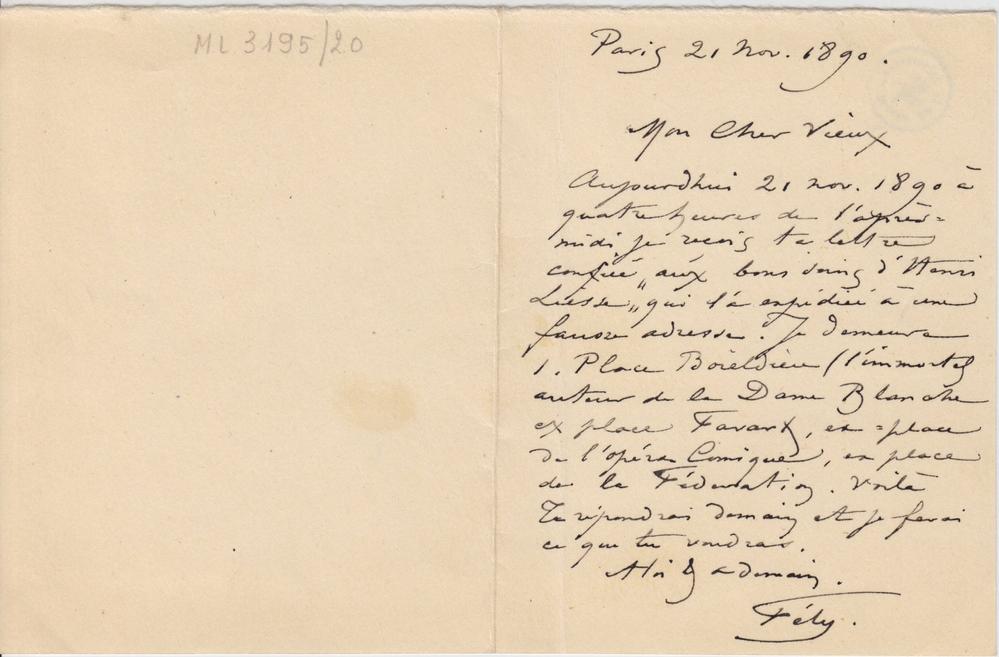 ML 3195/20
Paris 21 Nov. 1890.
Mon Cher Vieux
Aujourdhui 21 nov. 1890 à
quatre heures de l'après=
midi, je reçois ta lettre
confiée „aux bons soins d'Henri
Liesse„ qui l'a expédiée à une
fausse adresse. Je demeure
1. Place Boieldieu (l'immortel
auteur de la Dame Blanche
ex place Favart, ex=place
de l'opéra Comique, ex place
de la Fédération. Voilà
Te répondrai demain et je ferai
ce que tu voudras.
A toi & a demain.
Fély.